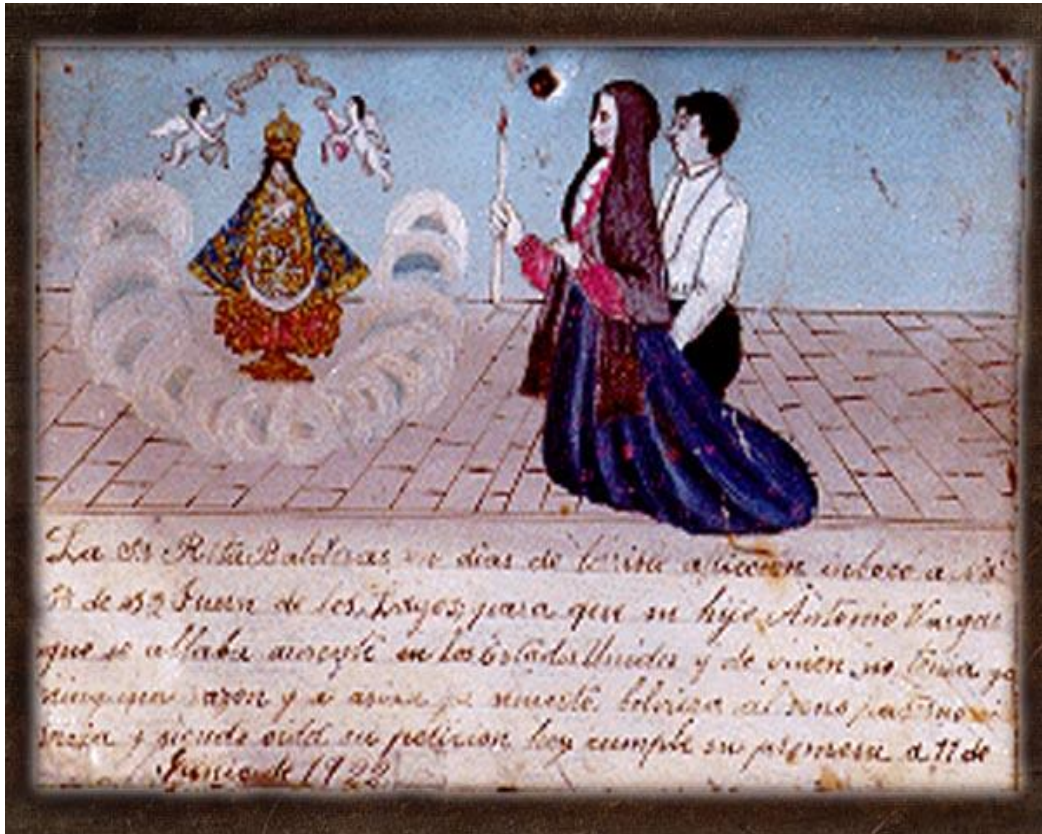 La Sr Rita Balderas, en dias de terible afliccion inboco a
de Sn Juan de los Lagos, para que su hijo Antonio Vargas
que se allaba ausente en los Estados Unidos y de quien no tenia ya
ninguna razon y a muerte bolviera al seno
y siendo oida su peticion hoy cumple su promesa a 11 de
Junio de 1922